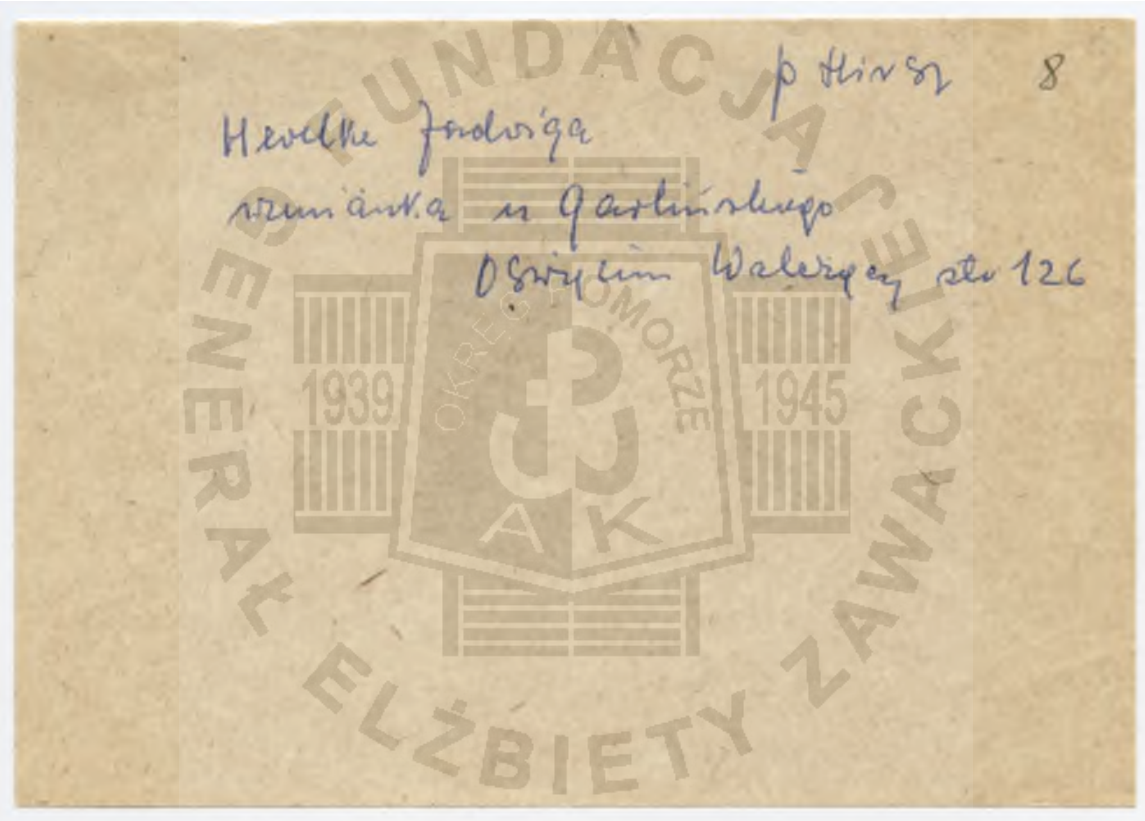 p Hirsz 8
Hevelke Jadwiga
wzmianka u Garlińskiego
Oświęcim Walczący str 126
FUNDACJA JEJ GENERAŁ ELŻBIETY ZAWACKIEJ
OKRĘG POMORZE
1939
1945
AK